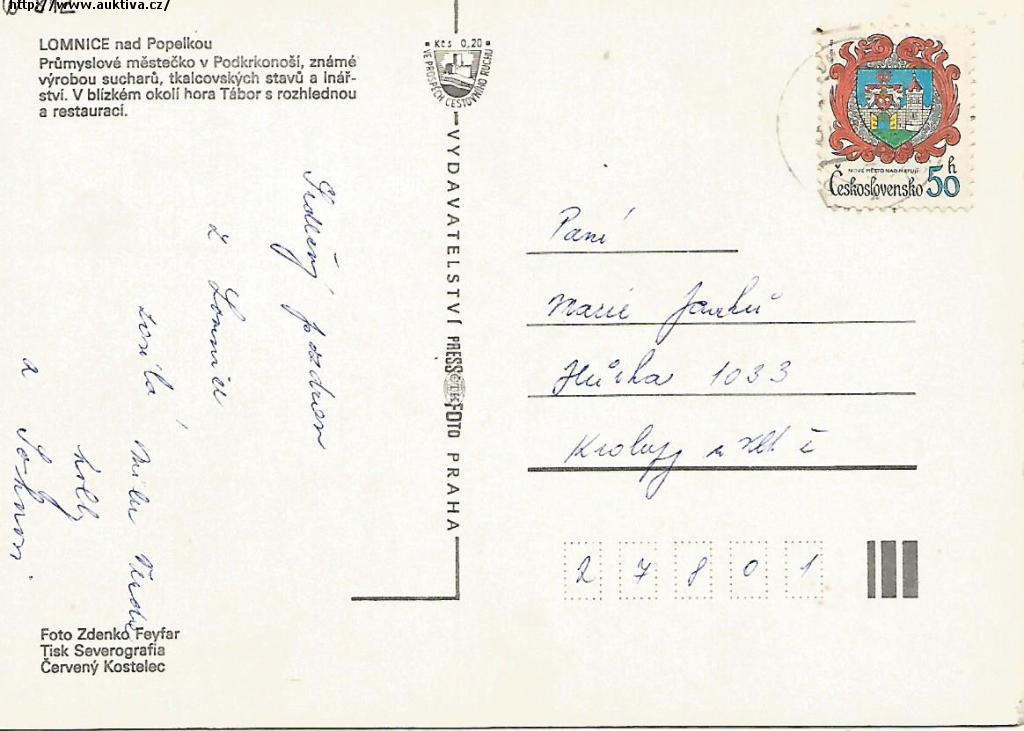 http://www.auktiva.cz/
LOMNICE nad Popelkou
Průmyslové městečko v Podkrkonoší, známé
výrobou sucharů, tkalcovských stavů a lnář-
ství. V blízkém okolí hora Tábor s rozhlednou
a restaurací.
Kčs 0,20
VE PROSPĚCH CESTOVNÍHO RUCHU
NOVÉ MĚSTO NAD METUJÍ
Československo 50 h
VYDAVATELSTVÍ PRESSFOTO PRAHA
Srdečný pozdrav
z Lomnice
a
Paní
Marie
Hůrka 1033
Kralupy n Vlt
27801
Foto Zdenko Feyfar
Tisk Severografia
Červený Kostelec